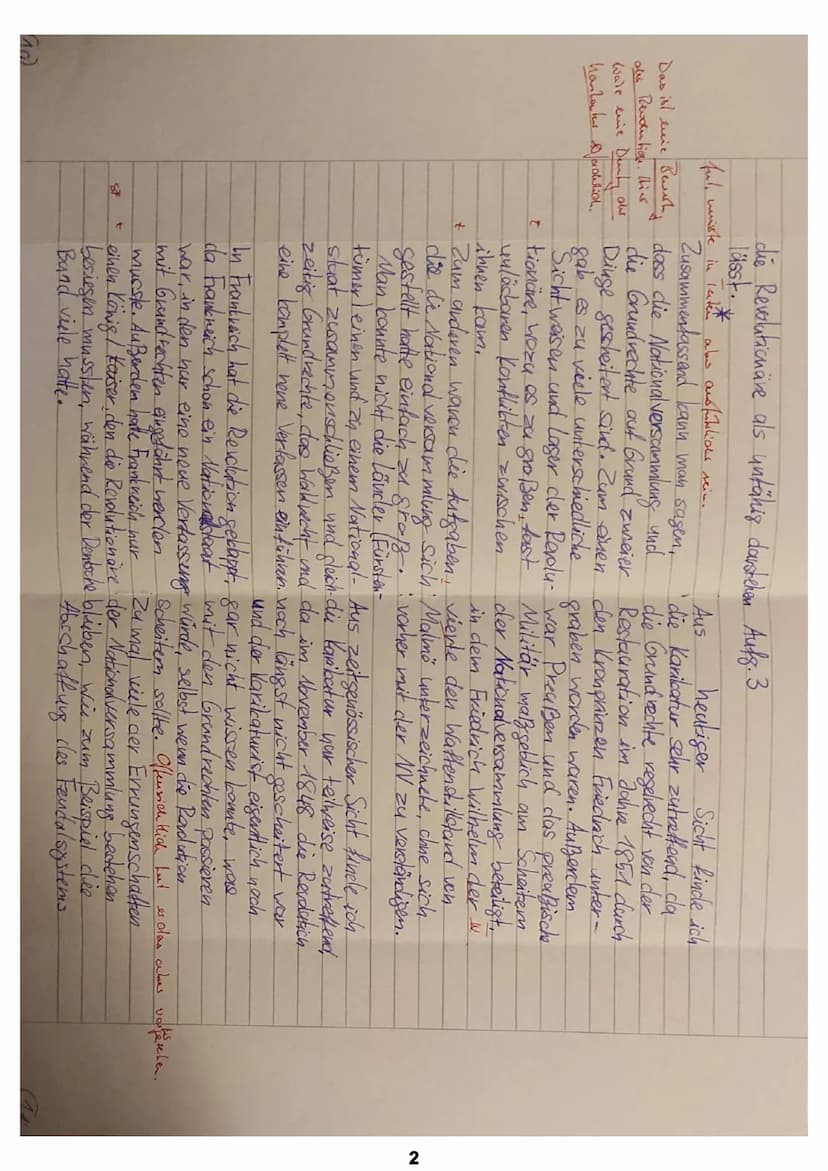 die Revolutionäre als unfähig darstehen
lässt. *
gut, müsste in Teilen aber ausführlicher sein.
Zusammenfassend kann man sagen,
dass die Nationalversammlung und
die Grundrechte auf Grund zweier
Dinge gescheitert sind. Zum einen
gab es zu viele unterschiedliche
Sichtweisen und Lager der Revolu-
tionäre, wozu es zu großen, fast
unlösbaren Konflikten zwischen
ihnen kam.
Zum anderen waren die Aufgaben,
die die Nationalversammlung sich
gestellt hatte einfach zu groß.
Man konnte nicht die Länder (Fürsten-
tümer) einen und zu einem National-
staat zusammenschließen und gleich-
zeitig Grundrechte, das Wahlrecht und
eine komplett neue Verfassen einführen.
In Frankreich hat die Revolution geklappt,
da Frankreich schon ein Nationalstaat
war, in den nur eine neue Verfassung
mit Grundrechten eingeführt werden
musste. Außerdem hatte Frankreich nur
einen König/Kaiser, den die Revolutionäre
besiegen mussten, während der Deutsche
Bund viele hatte.
Das ist eine
der Revolution. Hier
wäre eine Deutung der
Karikatur erforderlich.
t
t
t
Aufg. 3
Aus heutiger Sicht finde ich
die Karikatur sehr zutreffend, da
die Grundrechte regelrecht von der
Restauration im Jahre 1851 durch
den Kronprinzen Friedrich unter-
graben worden waren. Außerdem
war Preußen und das preußische
Militär maßgeblich am Scheitern
der Nationalversammlung beteiligt,
in dem Friedrich Wilhelm der IV
vierte den Waffenstillstand von
Malmö unterzeichnete, ohne sich
vorher mit der NV zu verständigen.
Aus zeitgenössischer Sicht finde ich
die Karikatur nur teilweise zutreffend,
da im November 1848 die Revolution
noch längst nicht gescheitert war
und der Karikaturist eigentlich noch
gar nicht wissen konnte, was
mit den Grundrechten passieren
würde, selbst wenn die Revolution
scheitern sollte. Offensichtlich hat er das aber vorhergesehen.
Zumal viele der Errungenschaften
der Nationalversammlung bestehen
blieben, wie zum Beispiel die
Abschaffung des Feudalsystems
2